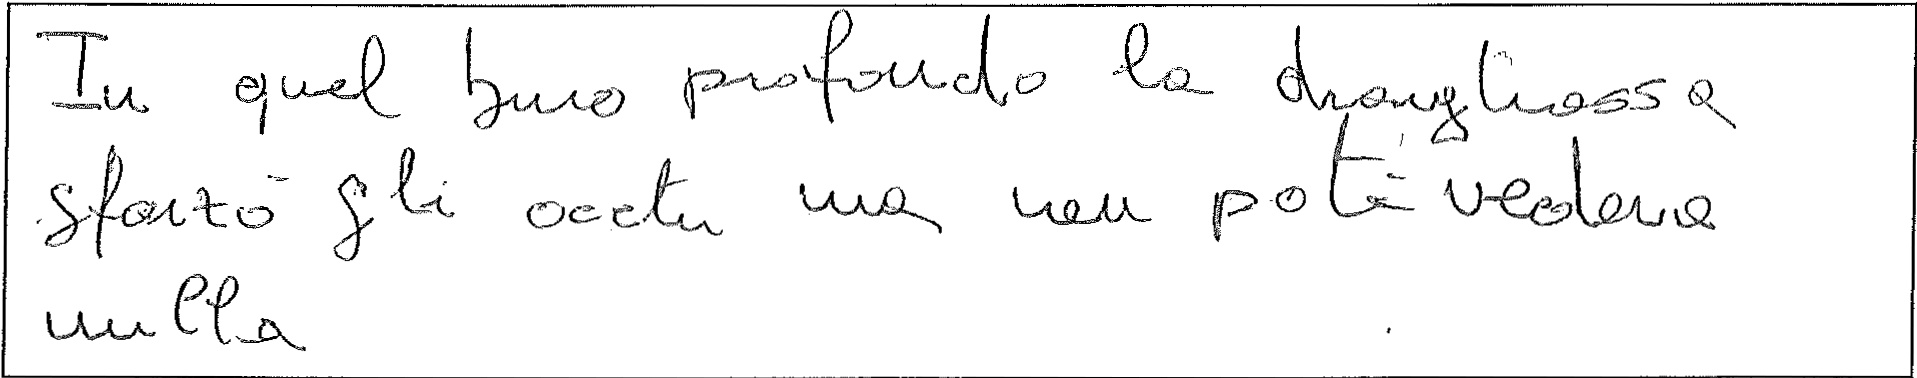 In quel buco profondo la draghessa
sforzò gli occhi ma non poté vedere
nulla